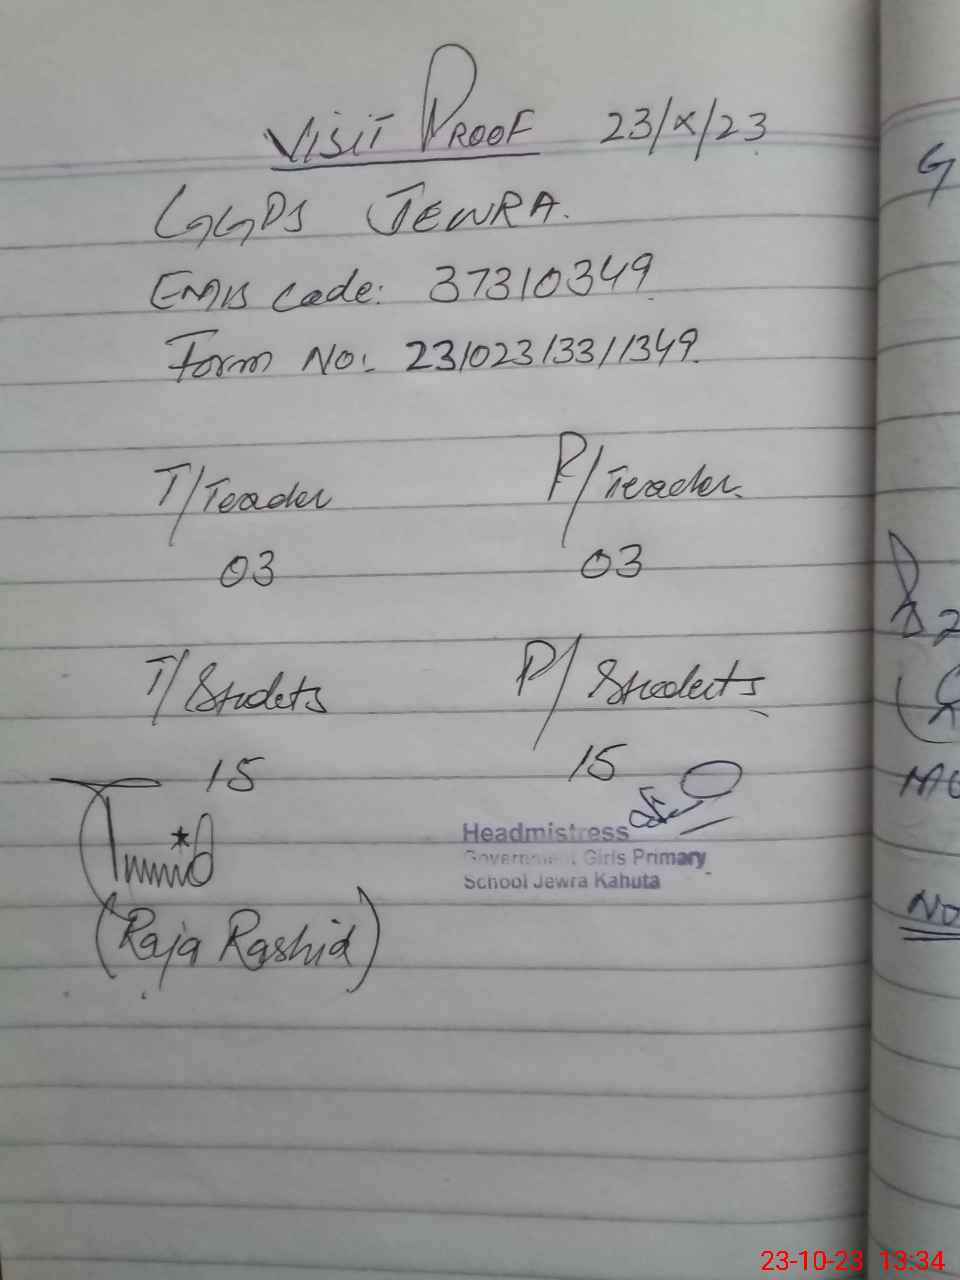 VISIT PROOF 23/X/23
GGPS JEWRA.
EMIS Code: 37310349
Form No: 23102313311349.
T/Teacher P/Teacher.
03 03
T/Students P/Students
15 15
Headmistress
Government Girls Primary
School Jewra Kahuta
(Raja Rashid)
No
23-10-23 13:34